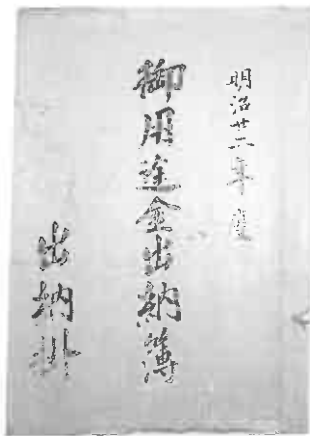 明治廿二年度
御用途金出納簿
出納掛